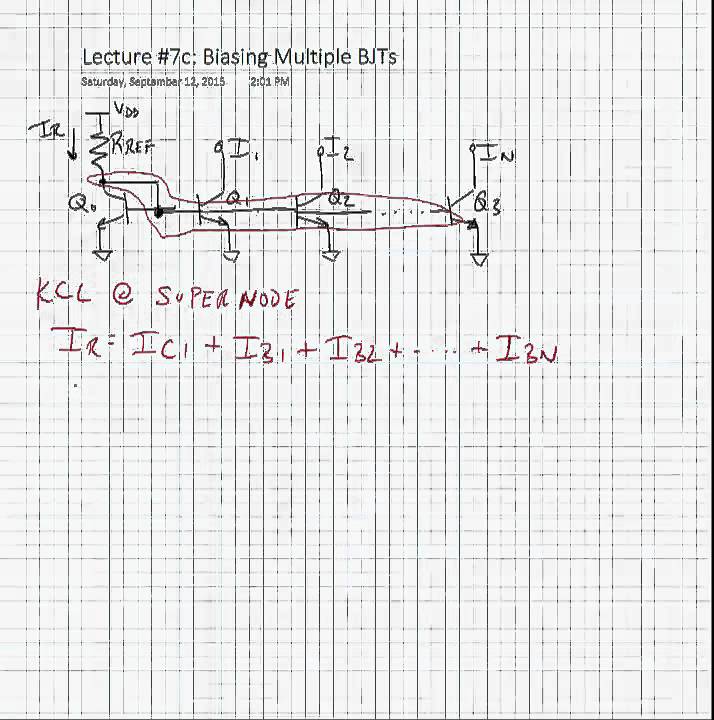 Lecture #7c: Biasing Multiple BJTs
Saturday, September 12, 2015 2:01 PM
VDD
IR
RREF
I1
I2
IN
Q0
Q1
Q2
Q3
KCL @ SUPERNODE
IR = IC1 + IB1 + IB2 + ..... + IBN